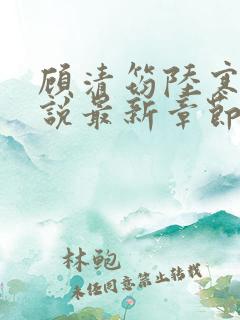 顾清筠陆寒
说最新章节
林鲍
未经同意禁止转载